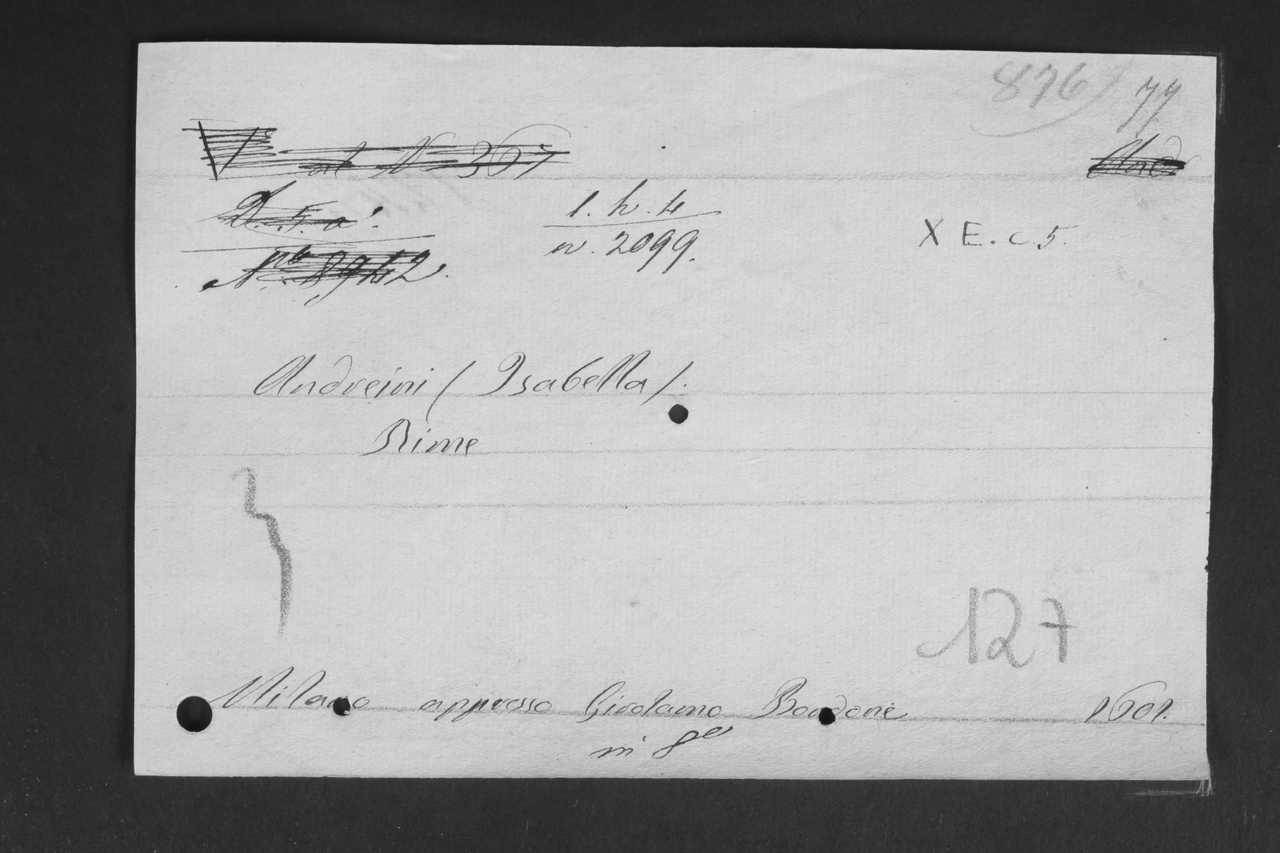 876 77
1. h. 4
n. 2099.
X E. c. 5.
Andreini (Isabella).
Rime
127
Milano appresso Girolamo Bordone 1601.
in 8º